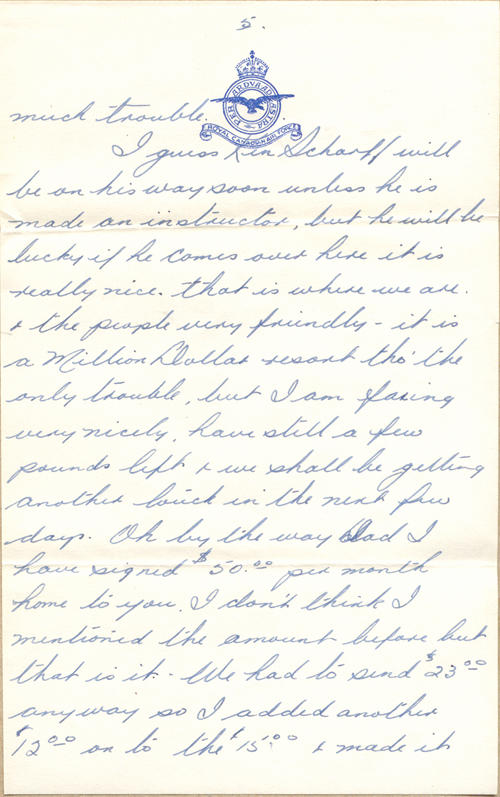 5.
PER ARDUA AD ASTRA
ROYAL CANADIAN AIR FORCE
much trouble.
I guess Kin Scharff will
be on his way soon unless he is
made an instructor, but he will be
lucky if he comes over here it is
really nice. that is where we are.
& the people very friendly - it is
a Million Dollar resort tho' the
only trouble, but I am faring
very nicely, have still a few
pounds left & we shall be getting
another in the next few
days. Oh by the way Dad I
have signed $50.00 per month
home to you. I don't think I
mentioned the amount before but
that is it. We had to send $23.00
anyway so I added another
$12.00 on to the $15.00 & made it